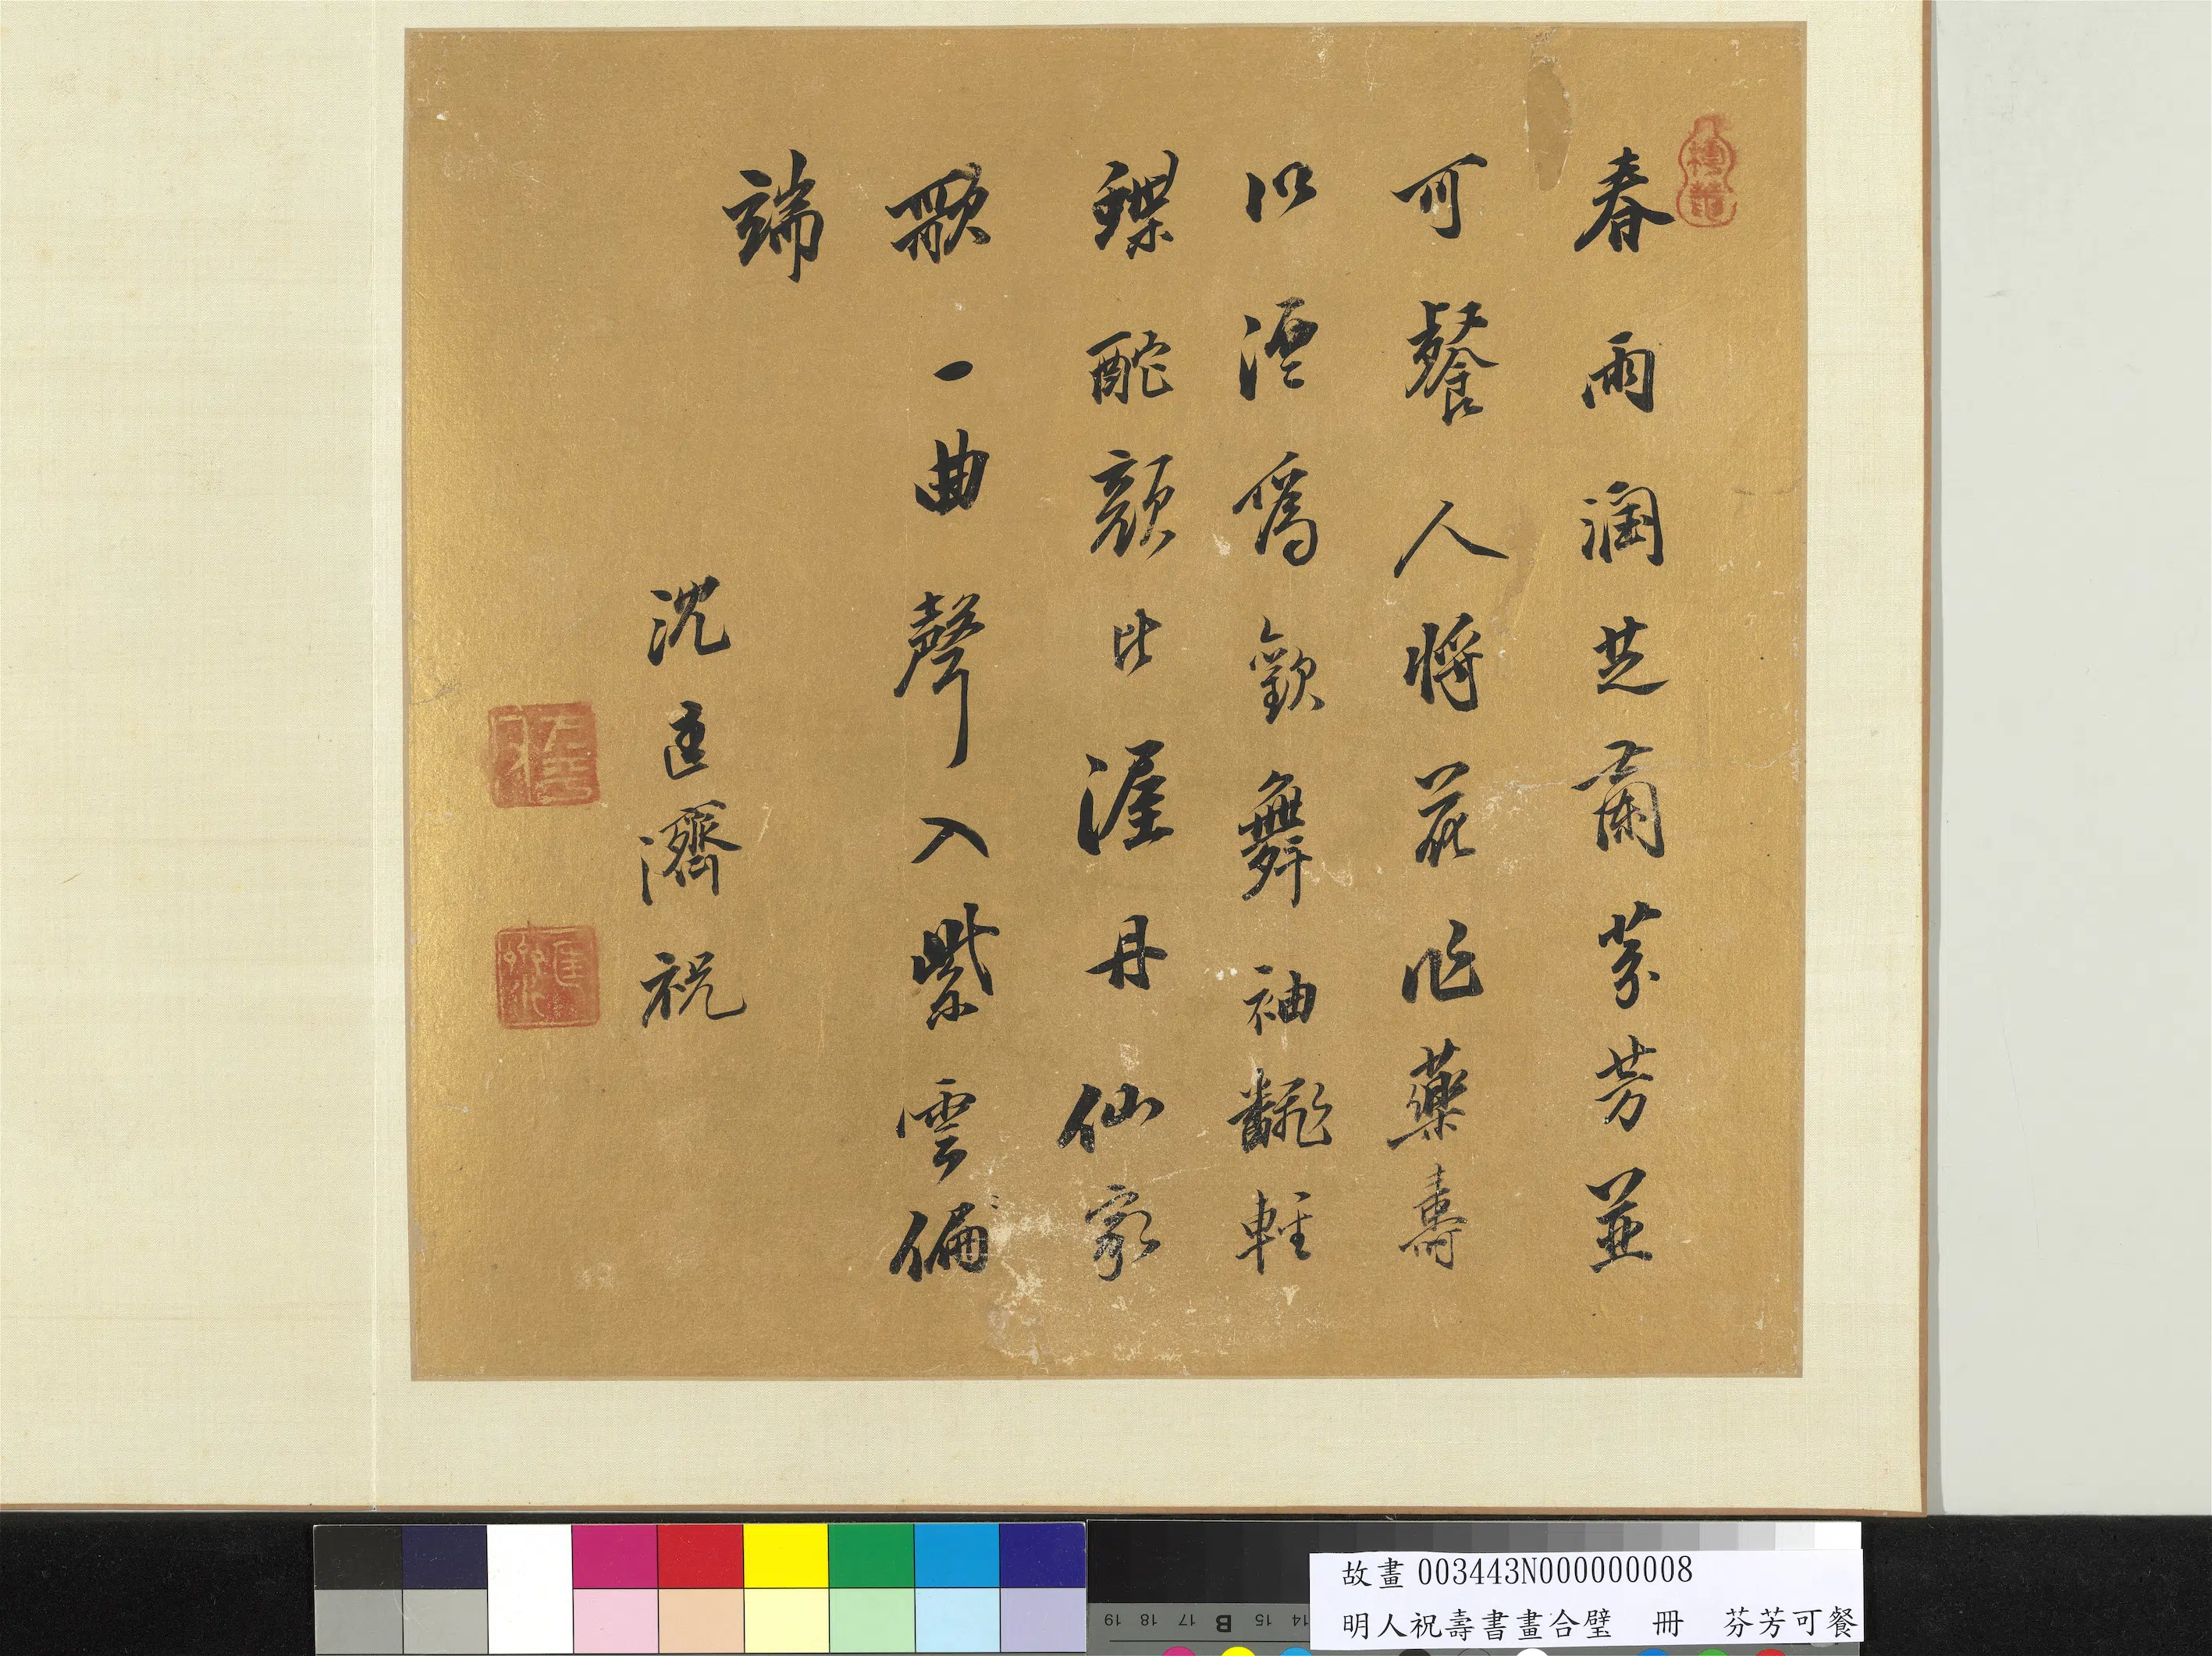 春雨潤芝蘭芬芳並
可餐人將花作藥壽
以酒爲歡舞袖飜輕
蝶酡顏比渥丹仙家
歌一曲聲入紫雲偏
端
沈匡濟祝
故畫 003443N000000008
明人祝壽書畫合璧 冊 芬芳可餐
19 18 17 B 15 14